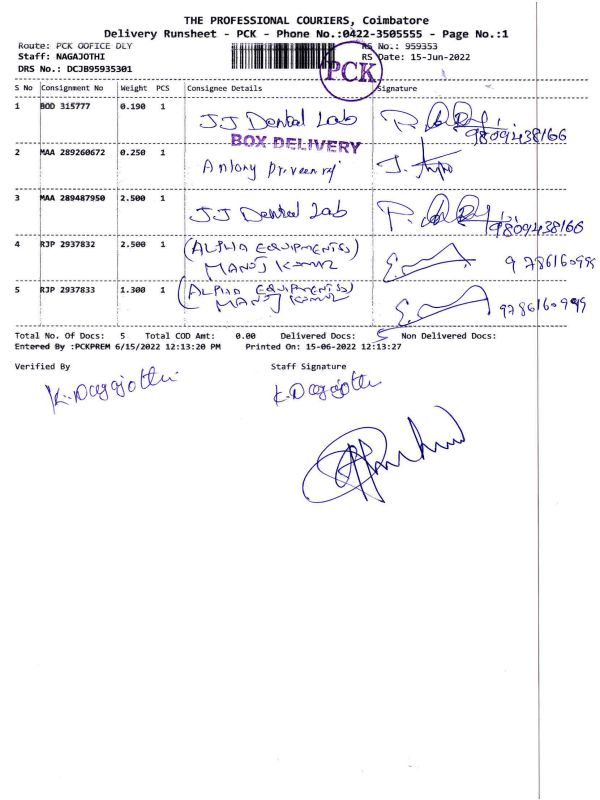 THE PROFESSIONAL COURIERS, Coimbatore
Delivery Runsheet - PCK - Phone No.:0422-3505555 - Page No.:1
Route: PCK OOFICE DLY RS No.: 959353
Staff: NAGAJOTHI RS Date: 15-Jun-2022
DRS No.: DCJB95935301
PCK
S No Consignment No Weight PCS Consignee Details Signature
1 BOD 315777 0.190 1 JJ Dental Lab 9809438166
BOX DELIVERY
2 MAA 289260672 0.250 1 Antony Praveen raj
3 MAA 289487950 2.500 1 JJ Dental Lab 9809438166
4 RJP 2937832 2.500 1 (ALPHA EQUIPMENTS)
MANOJ KUMAR
5 RJP 2937833 1.300 1 (ALPHA EQUIPMENTS)
MANOJ KUMAR
Total No. Of Docs: 5 Total COD Amt: 0.00 Delivered Docs: 5 Non Delivered Docs:
Entered By :PCKPREM 6/15/2022 12:13:20 PM Printed On: 15-06-2022 12:13:27
Verified By Staff Signature
K.Nagajothi K.Nagajothi